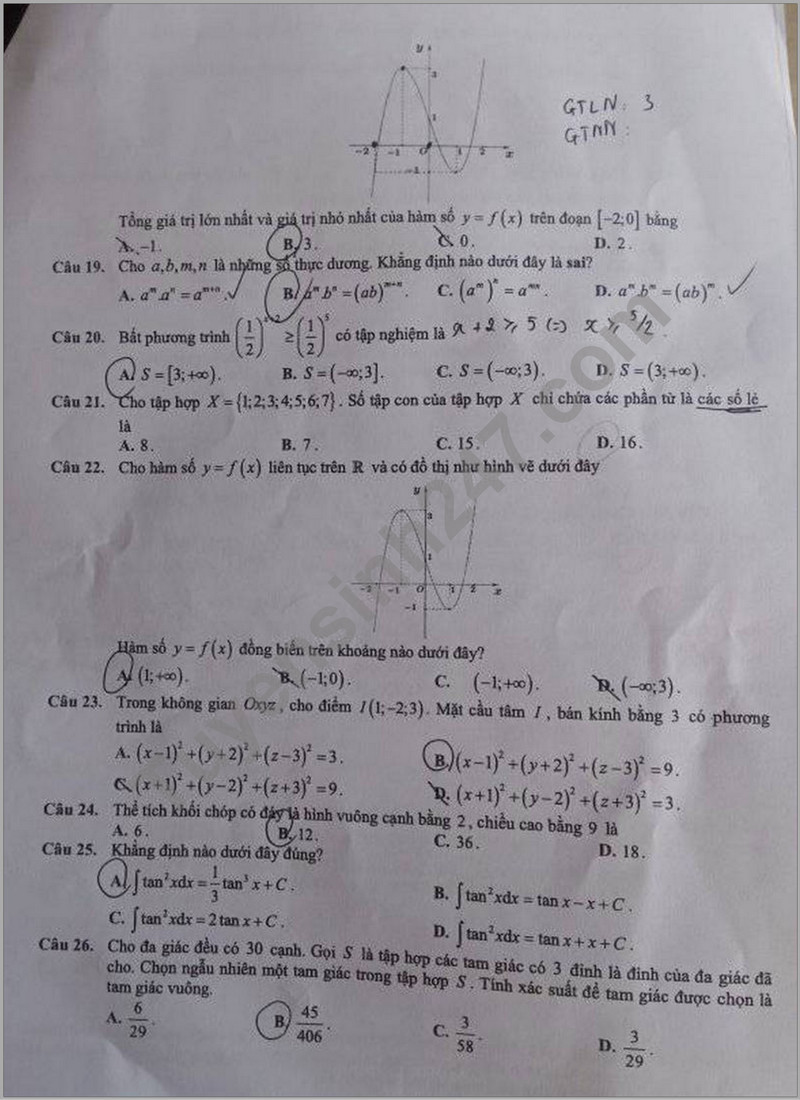 y
3
GTLN: 3
GTNN:
1
-2 -1 O 1 2 x
-1
Tổng giá trị lớn nhất và giá trị nhỏ nhất của hàm số y = f(x) trên đoạn [-2;0] bằng
A. -1. B. 3. C. 0. D. 2.
Câu 19. Cho a,b,m,n là những số thực dương. Khẳng định nào dưới đây là sai?
A. a^m.a^n = a^{m+n}. B. a^m.b^n = (ab)^{m+n}. C. (a^m)^n = a^{mn}. D. a^m.b^m = (ab)^m.
Câu 20. Bất phương trình (1/2)^{x+2} ≥ (1/2)^5 có tập nghiệm là x + 2 ≥ 5 (=) x ≥ 5/2
A. S = [3;+∞). B. S = (-∞;3]. C. S = (-∞;3). D. S = (3;+∞).
Câu 21. Cho tập hợp X = {1;2;3;4;5;6;7}. Số tập con của tập hợp X chỉ chứa các phần tử là các số lẻ
là
A. 8. B. 7. C. 15. D. 16.
Câu 22. Cho hàm số y = f(x) liên tục trên R và có đồ thị như hình vẽ dưới đây
y
3
1
-2 -1 O 1 2 x
-1
Hàm số y = f(x) đồng biến trên khoảng nào dưới đây?
A. (1;+∞). B. (-1;0). C. (-1;+∞). D. (-∞;3).
Câu 23. Trong không gian Oxyz, cho điểm I(1;-2;3). Mặt cầu tâm I, bán kính bằng 3 có phương
trình là
A. (x-1)²+(y+2)²+(z-3)² = 3. B. (x-1)²+(y+2)²+(z-3)² = 9.
C. (x+1)²+(y-2)²+(z+3)² = 9. D. (x+1)²+(y-2)²+(z+3)² = 3.
Câu 24. Thể tích khối chóp có đáy là hình vuông cạnh bằng 2, chiều cao bằng 9 là
A. 6. B. 12. C. 36. D. 18.
Câu 25. Khẳng định nào dưới đây đúng?
A. ∫tan²xdx = 1/3 tan³x + C. B. ∫tan²xdx = tan x - x + C.
C. ∫tan²xdx = 2 tan x + C. D. ∫tan²xdx = tan x + x + C.
Câu 26. Cho đa giác đều có 30 cạnh. Gọi S là tập hợp các tam giác có 3 đỉnh là đỉnh của đa giác đã
cho. Chọn ngẫu nhiên một tam giác trong tập hợp S. Tính xác suất để tam giác được chọn là
tam giác vuông.
A. 6/29. B. 45/406. C. 3/58. D. 3/29.